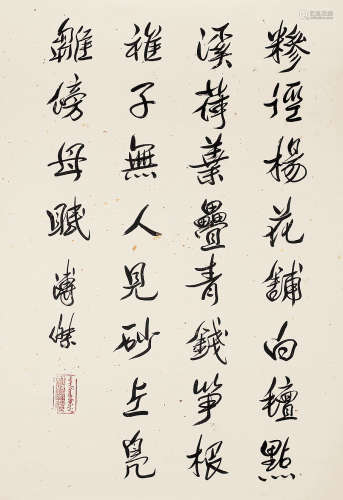 糝徑楊花舖白氊點
溪荷葉疊青錢笋根
稚子無人見砂上鳧
雛傍母眠溥傑